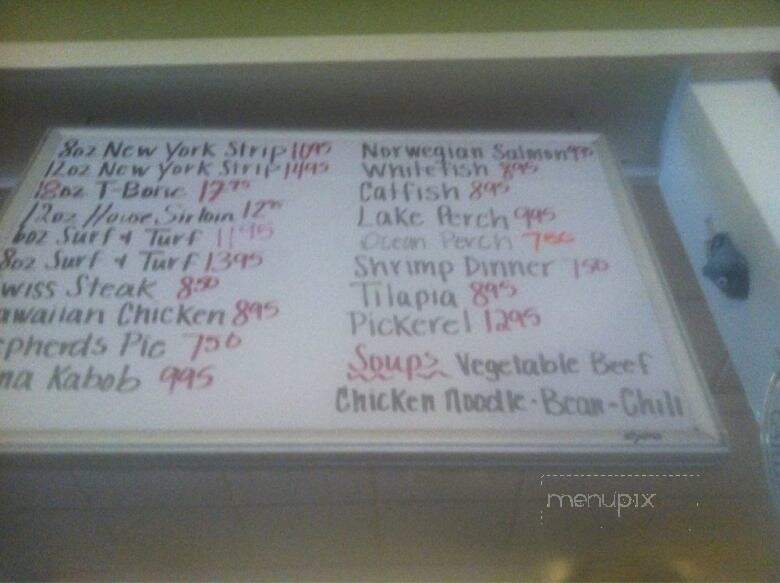 8oz New York Strip 1095
12oz New York Strip 1495
18oz T-Bone
12oz House Sirloin
6oz Surf & Turf 1195
8oz Surf & Turf 1395
wiss Steak 850
awaiian Chicken 895
epherds Pie 750
na Kabob 995
Norwegian Salmon 995
Whitefish 895
Catfish 895
Lake Perch 995
Ocean Perch 750
Shrimp Dinner 750
Tilapia 895
Pickerel 1295
Soups Vegetable Beef
Chicken Noodle-Bean-Chili
menupix